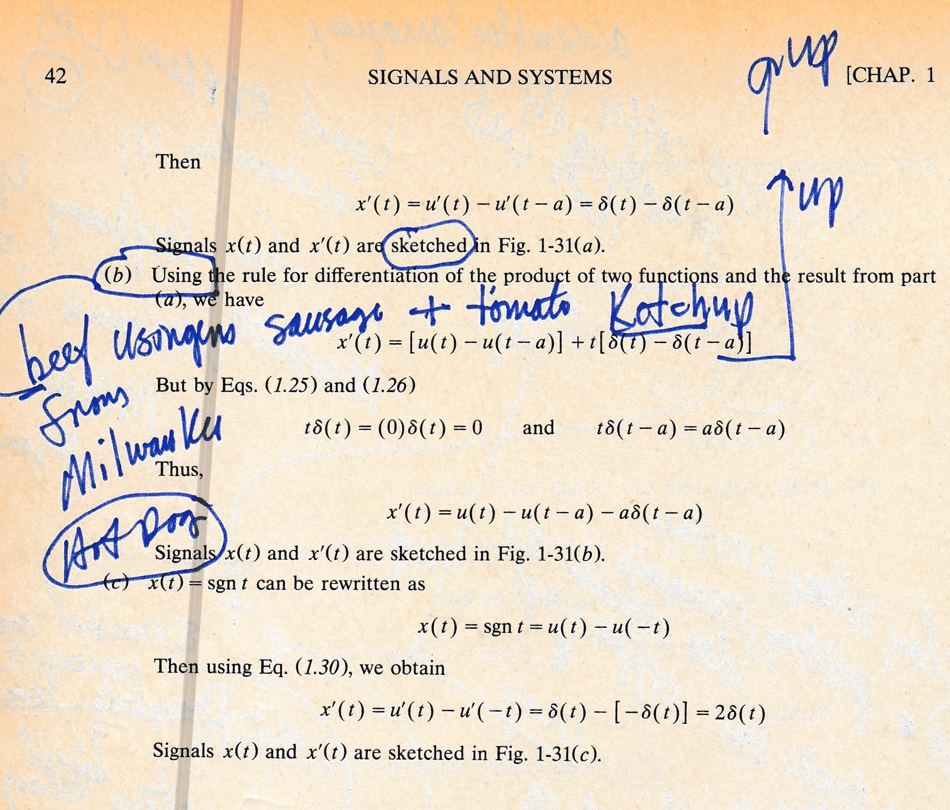 42 SIGNALS AND SYSTEMS [CHAP. 1
up
Then
x′(t) = u′(t) − u′(t − a) = δ(t) − δ(t − a)
up
Signals x(t) and x′(t) are sketched in Fig. 1-31(a).
(b) Using the rule for differentiation of the product of two functions and the result from part
(a), we have
sausage + tomato Ketchup
x′(t) = [u(t) − u(t − a)] + t[δ(t) − δ(t − a)]
beef
But by Eqs. (1.25) and (1.26)
from
tδ(t) = (0)δ(t) = 0 and tδ(t − a) = aδ(t − a)
Milwaukee
Thus,
x′(t) = u(t) − u(t − a) − aδ(t − a)
Hot Dog
Signals x(t) and x′(t) are sketched in Fig. 1-31(b).
(c) x(t) = sgn t can be rewritten as
x(t) = sgn t = u(t) − u(−t)
Then using Eq. (1.30), we obtain
x′(t) = u′(t) − u′(−t) = δ(t) − [−δ(t)] = 2δ(t)
Signals x(t) and x′(t) are sketched in Fig. 1-31(c).